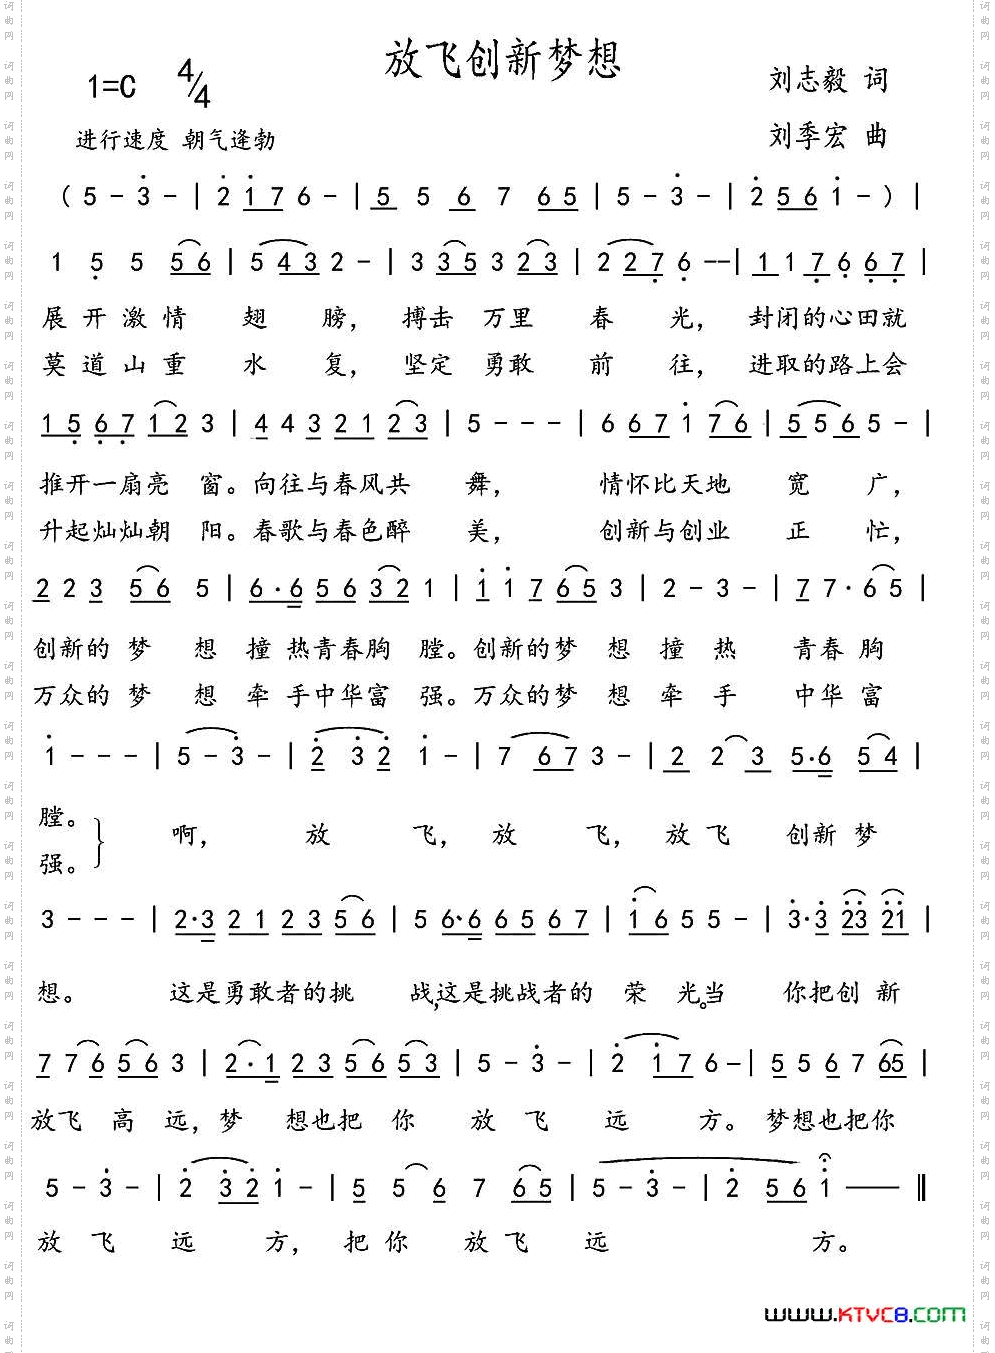 放飞创新梦想
1=C 4/4
刘志毅 词
进行速度 朝气逢勃
刘季宏 曲
( 5 - 3 - | 2 1 7 6 - | 5 5 6 7 6 5 | 5 - 3 - | 2 5 6 1 - ) |
1 5 5 5 6 | 5 4 3 2 - | 3 3 5 3 2 3 | 2 2 7 6 -- | 1 1 7 6 6 7 |
展 开 激 情 翅 膀， 搏击 万里 春 光， 封闭的心田就
莫 道 山 重 水 复， 坚定 勇敢 前 往， 进取的路上会
1 5 6 7 1 2 3 | 4 4 3 2 1 2 3 | 5 - - - | 6 6 7 1 7 6 | 5 5 6 5 - |
推开一扇亮 窗。向往与春风共 舞， 情怀比天地 宽 广，
升起灿灿朝 阳。春歌与春色醉 美， 创新与创业 正 忙，
2 2 3 5 6 5 | 6 · 6 5 6 3 2 1 | 1 1 7 6 5 3 | 2 - 3 - | 7 7 · 6 5 |
创新的 梦 想 撞 热青春胸 膛。创新的梦 想 撞 热 青春 胸
万众的 梦 想 牵 手中华富 强。万众的梦 想 牵 手 中华 富
1 - - - | 5 - 3 - | 2 3 2 1 - | 7 6 7 3 - | 2 2 3 5 · 6 5 4 |
膛。
强。
啊， 放 飞， 放 飞， 放 飞 创新 梦
3 - - - | 2 · 3 2 1 2 3 5 6 | 5 6 · 6 6 5 6 7 | 1 6 5 5 - | 3 · 3 2 3 2 1 |
想。 这是勇敢者的挑 战，这是挑战者的 荣 光。当 你把创 新
7 7 6 5 6 3 | 2 · 1 2 3 5 6 5 3 | 5 - 3 - | 2 1 7 6 - | 5 5 6 7 6 5 |
放飞 高 远，梦 想也把 你 放 飞 远 方。 梦想也把你
5 - 3 - | 2 3 2 1 - | 5 5 6 7 6 5 | 5 - 3 - | 2 5 6 1 —— ‖
放 飞 远 方， 把 你 放 飞 远 方。
www.KTVC8.com
词曲网